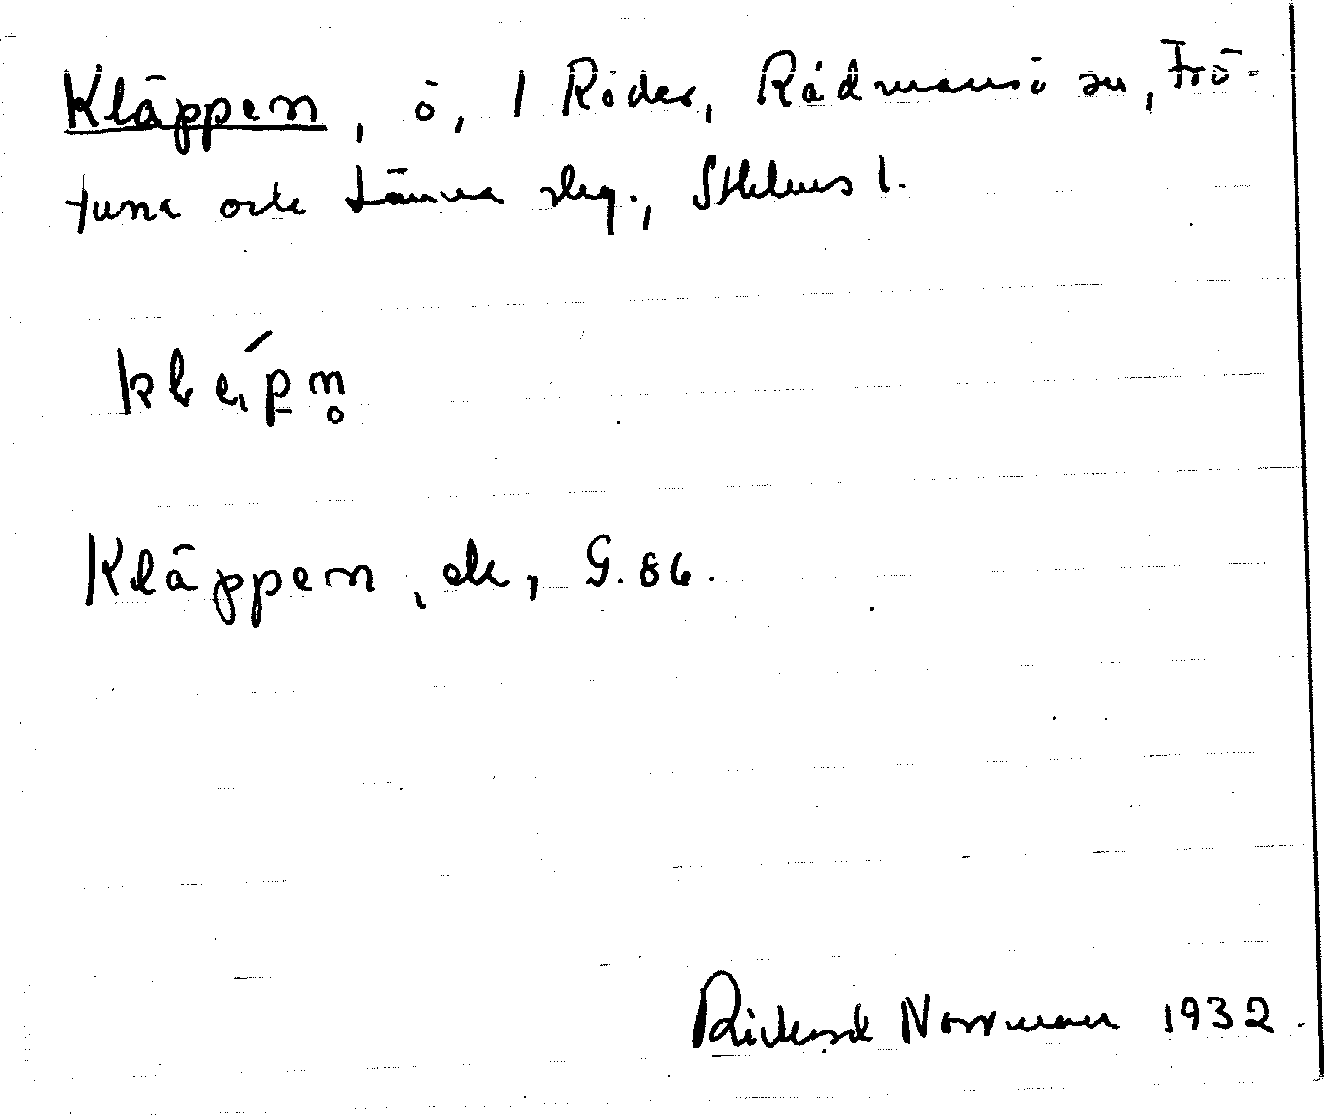 Kläppen, ö, 1 Röder, Rådmansö sn, Frö-
tuna och Länna skg., Sthlms l.
klép̠n̥
Kläppen, ek, G. 86.
Rickard Norrman 1932.